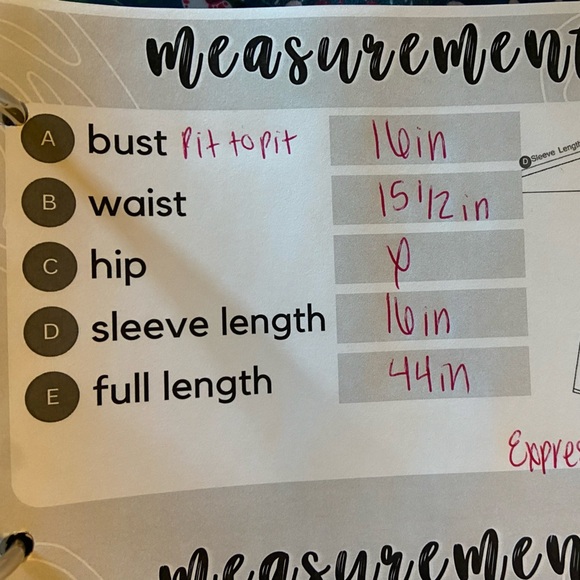 measurement
A bust Pit to pit 16in
D Sleeve Length
B waist 15 1/2 in
C hip
D sleeve length 16in
E full length 44in
Expres
measuremen